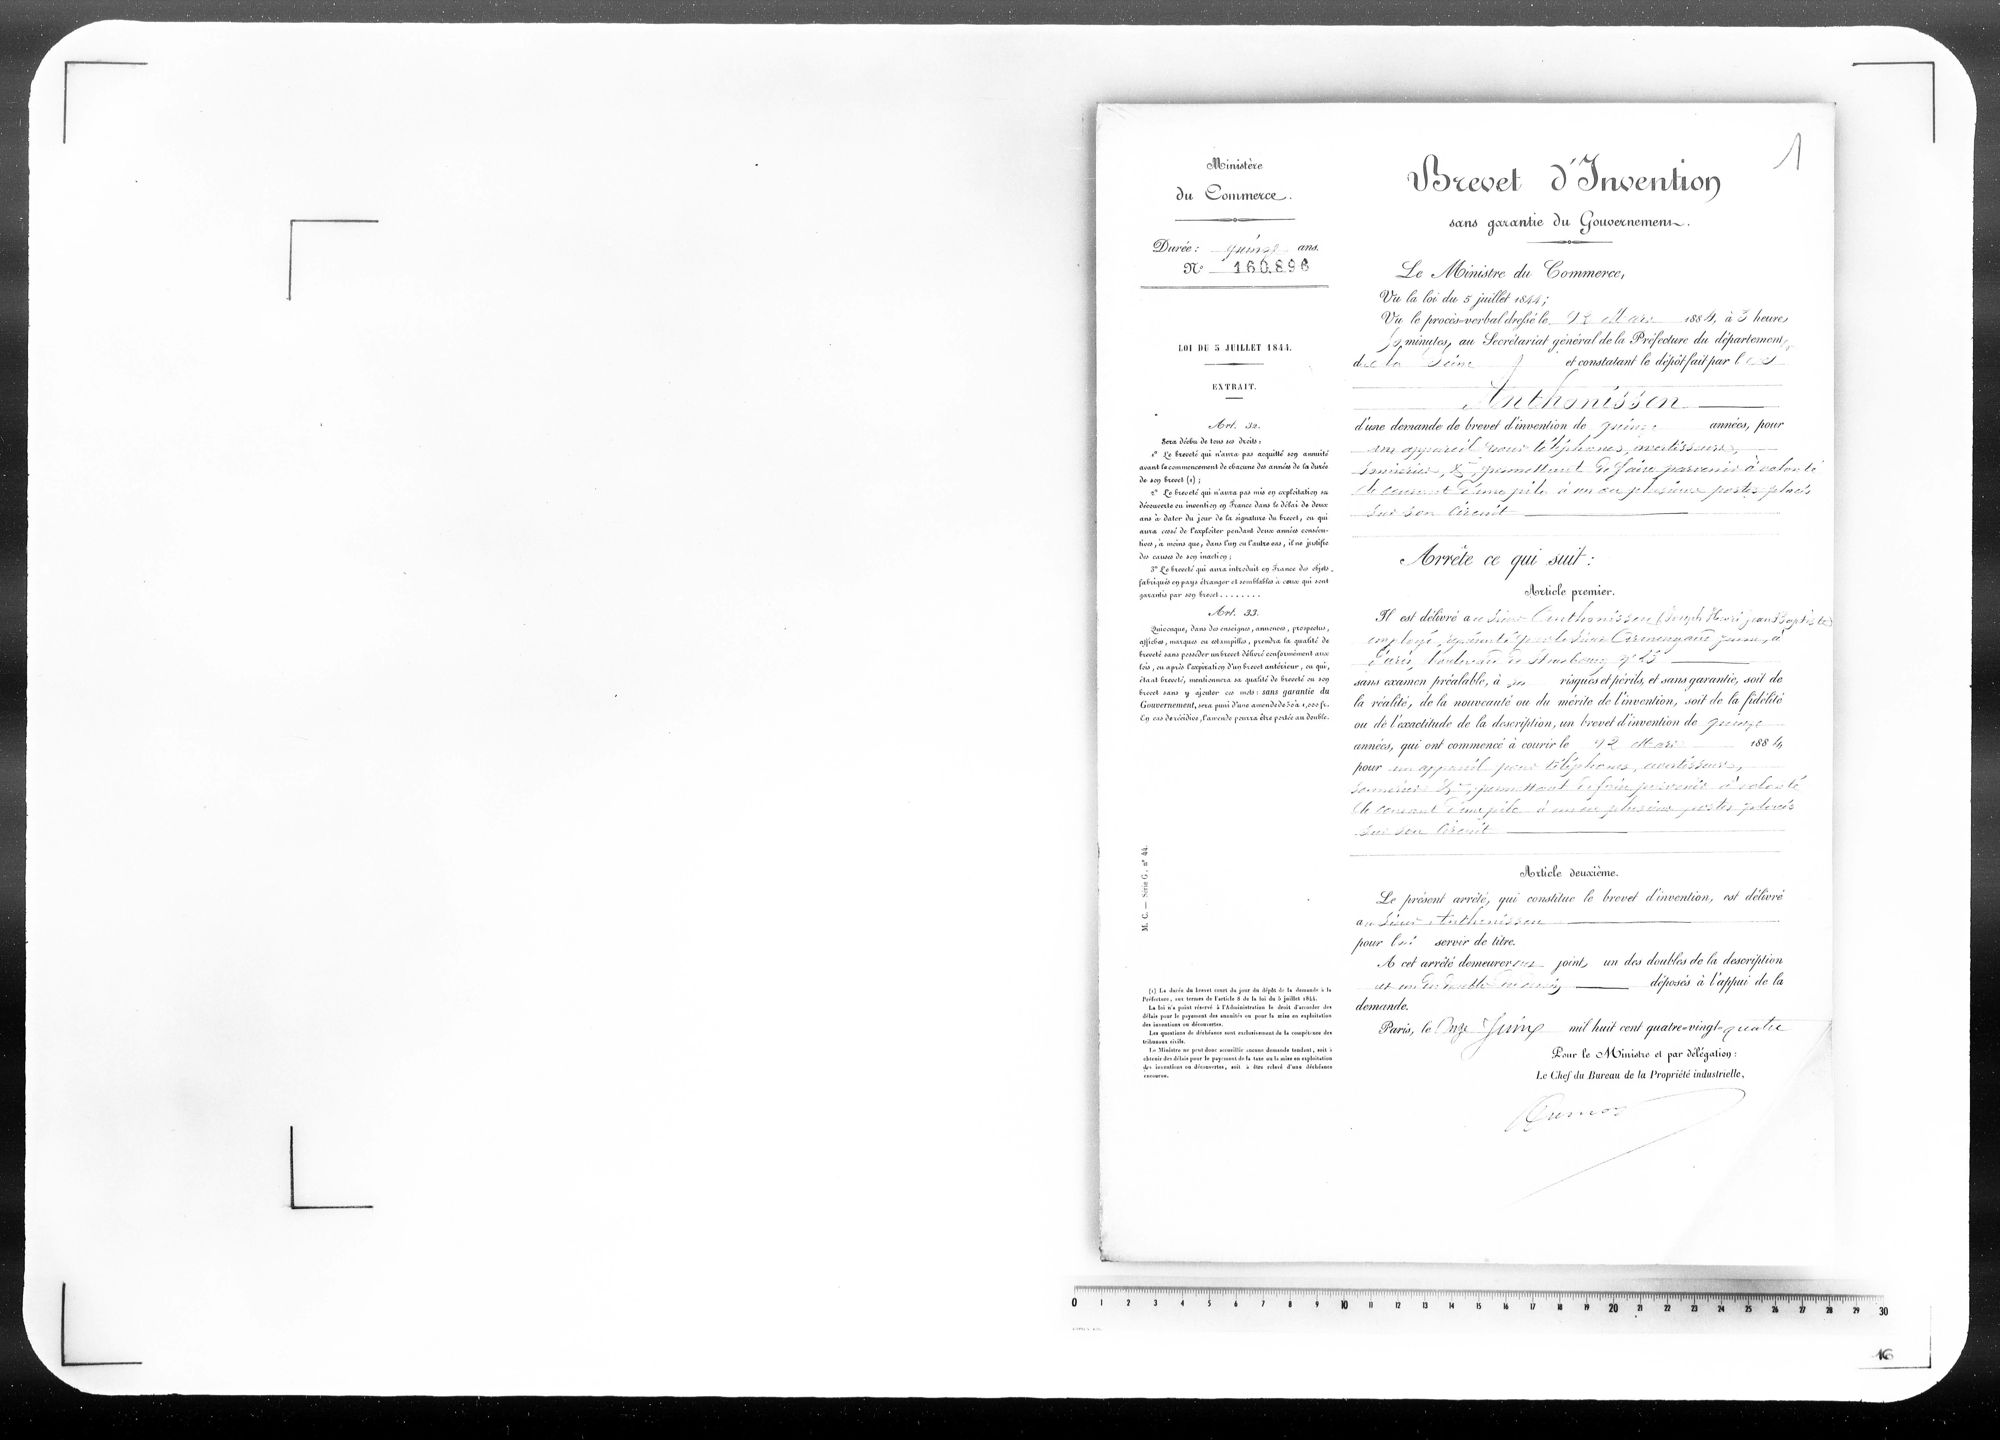 1
Ministère
du Commerce.
Durée : quinze ans.
N° 160.896
LOI DU 5 JUILLET 1844.
EXTRAIT.
Art. 32.
Sera déchu de tous ses droits :
1° Le breveté qui n'aura pas acquitté son annuité
avant le commencement de chacune des années de la durée
de son brevet (1) ;
2° Le breveté qui n'aura pas mis en exploitation sa
découverte ou invention en France dans le délai de deux
ans à dater du jour de la signature du brevet, ou qui
aura cessé de l'exploiter pendant deux années consécu-
tives, à moins que, dans l'un ou l'autre cas, il ne justifie
des causes de son inaction ;
3° Le breveté qui aura introduit en France des objets
fabriqués en pays étranger et semblables à ceux qui sont
garantis par son brevet........
Art. 33.
Quiconque, dans des enseignes, annonces, prospectus,
affiches, marques ou estampilles, prendra la qualité de
breveté sans posséder un brevet délivré conformément aux
lois, ou après l'expiration d'un brevet antérieur, ou qui,
étant breveté, mentionnera sa qualité de breveté ou son
brevet sans y ajouter ces mots : sans garantie du
Gouvernement, sera puni d'une amende de 50 à 1,000 fr.
En cas de récidive, l'amende pourra être portée au double.
M. C. — Série G, n° 44.
(1) La durée du brevet court du jour du dépôt de la demande à la
Préfecture, aux termes de l'article 8 de la loi du 5 juillet 1844.
La loi n'a point réservé à l'Administration le droit d'accorder des
délais pour le payement des annuités ou pour la mise en exploitation
des inventions ou découvertes.
Les questions de déchéance sont exclusivement de la compétence des
tribunaux civils.
Le Ministre ne peut donc accueillir aucune demande tendant, soit à
obtenir des délais pour le payement de la taxe ou la mise en exploitation
des inventions ou découvertes, soit à être relevé d'une déchéance
encourue.
Brevet d'Invention
sans garantie du Gouvernement.
Le Ministre du Commerce,
Vu la loi du 5 juillet 1844 ;
Vu le procès-verbal dressé le 12 Mars 1884, à 3 heures
minutes, au Secrétariat général de la Préfecture du département
de la Seine et constatant le dépôt fait par le S.
Anthonissen
d'une demande de brevet d'invention de quinze années, pour
un appareil pour téléphones, avertisseurs,
sonneries, &, permettant de faire parvenir à volonté
le courant d'une pile à un ou plusieurs postes placés
sur son circuit
Arrête ce qui suit :
Article premier.
Il est délivré au Sieur Anthonissen (Joseph Henri Jean Baptiste)
employé, représenté par le Sieur Armengaud jeune, à
Paris, boulevard de Strasbourg n° 23
sans examen préalable, à ses risques et périls, et sans garantie, soit de
la réalité, de la nouveauté ou du mérite de l'invention, soit de la fidélité
ou de l'exactitude de la description, un brevet d'invention de quinze
années, qui ont commencé à courir le 12 Mars 1884,
pour un appareil pour téléphones, avertisseurs,
sonneries &, permettant de faire parvenir à volonté
le courant d'une pile à un ou plusieurs postes placés
sur son circuit
Article deuxième.
Le présent arrêté, qui constitue le brevet d'invention, est délivré
au Sieur Anthonissen
pour lui servir de titre.
A cet arrêté demeureront joints un des doubles de la description
et un des doubles du dessin déposés à l'appui de la
demande.
Paris, le Onze Juin mil huit cent quatre-vingt-quatre
Pour le Ministre et par délégation :
Le Chef du Bureau de la Propriété industrielle,
0 1 2 3 4 5 6 7 8 9 10 11 12 13 14 15 16 17 18 19 20 21 22 23 24 25 26 27 28 29 30
16